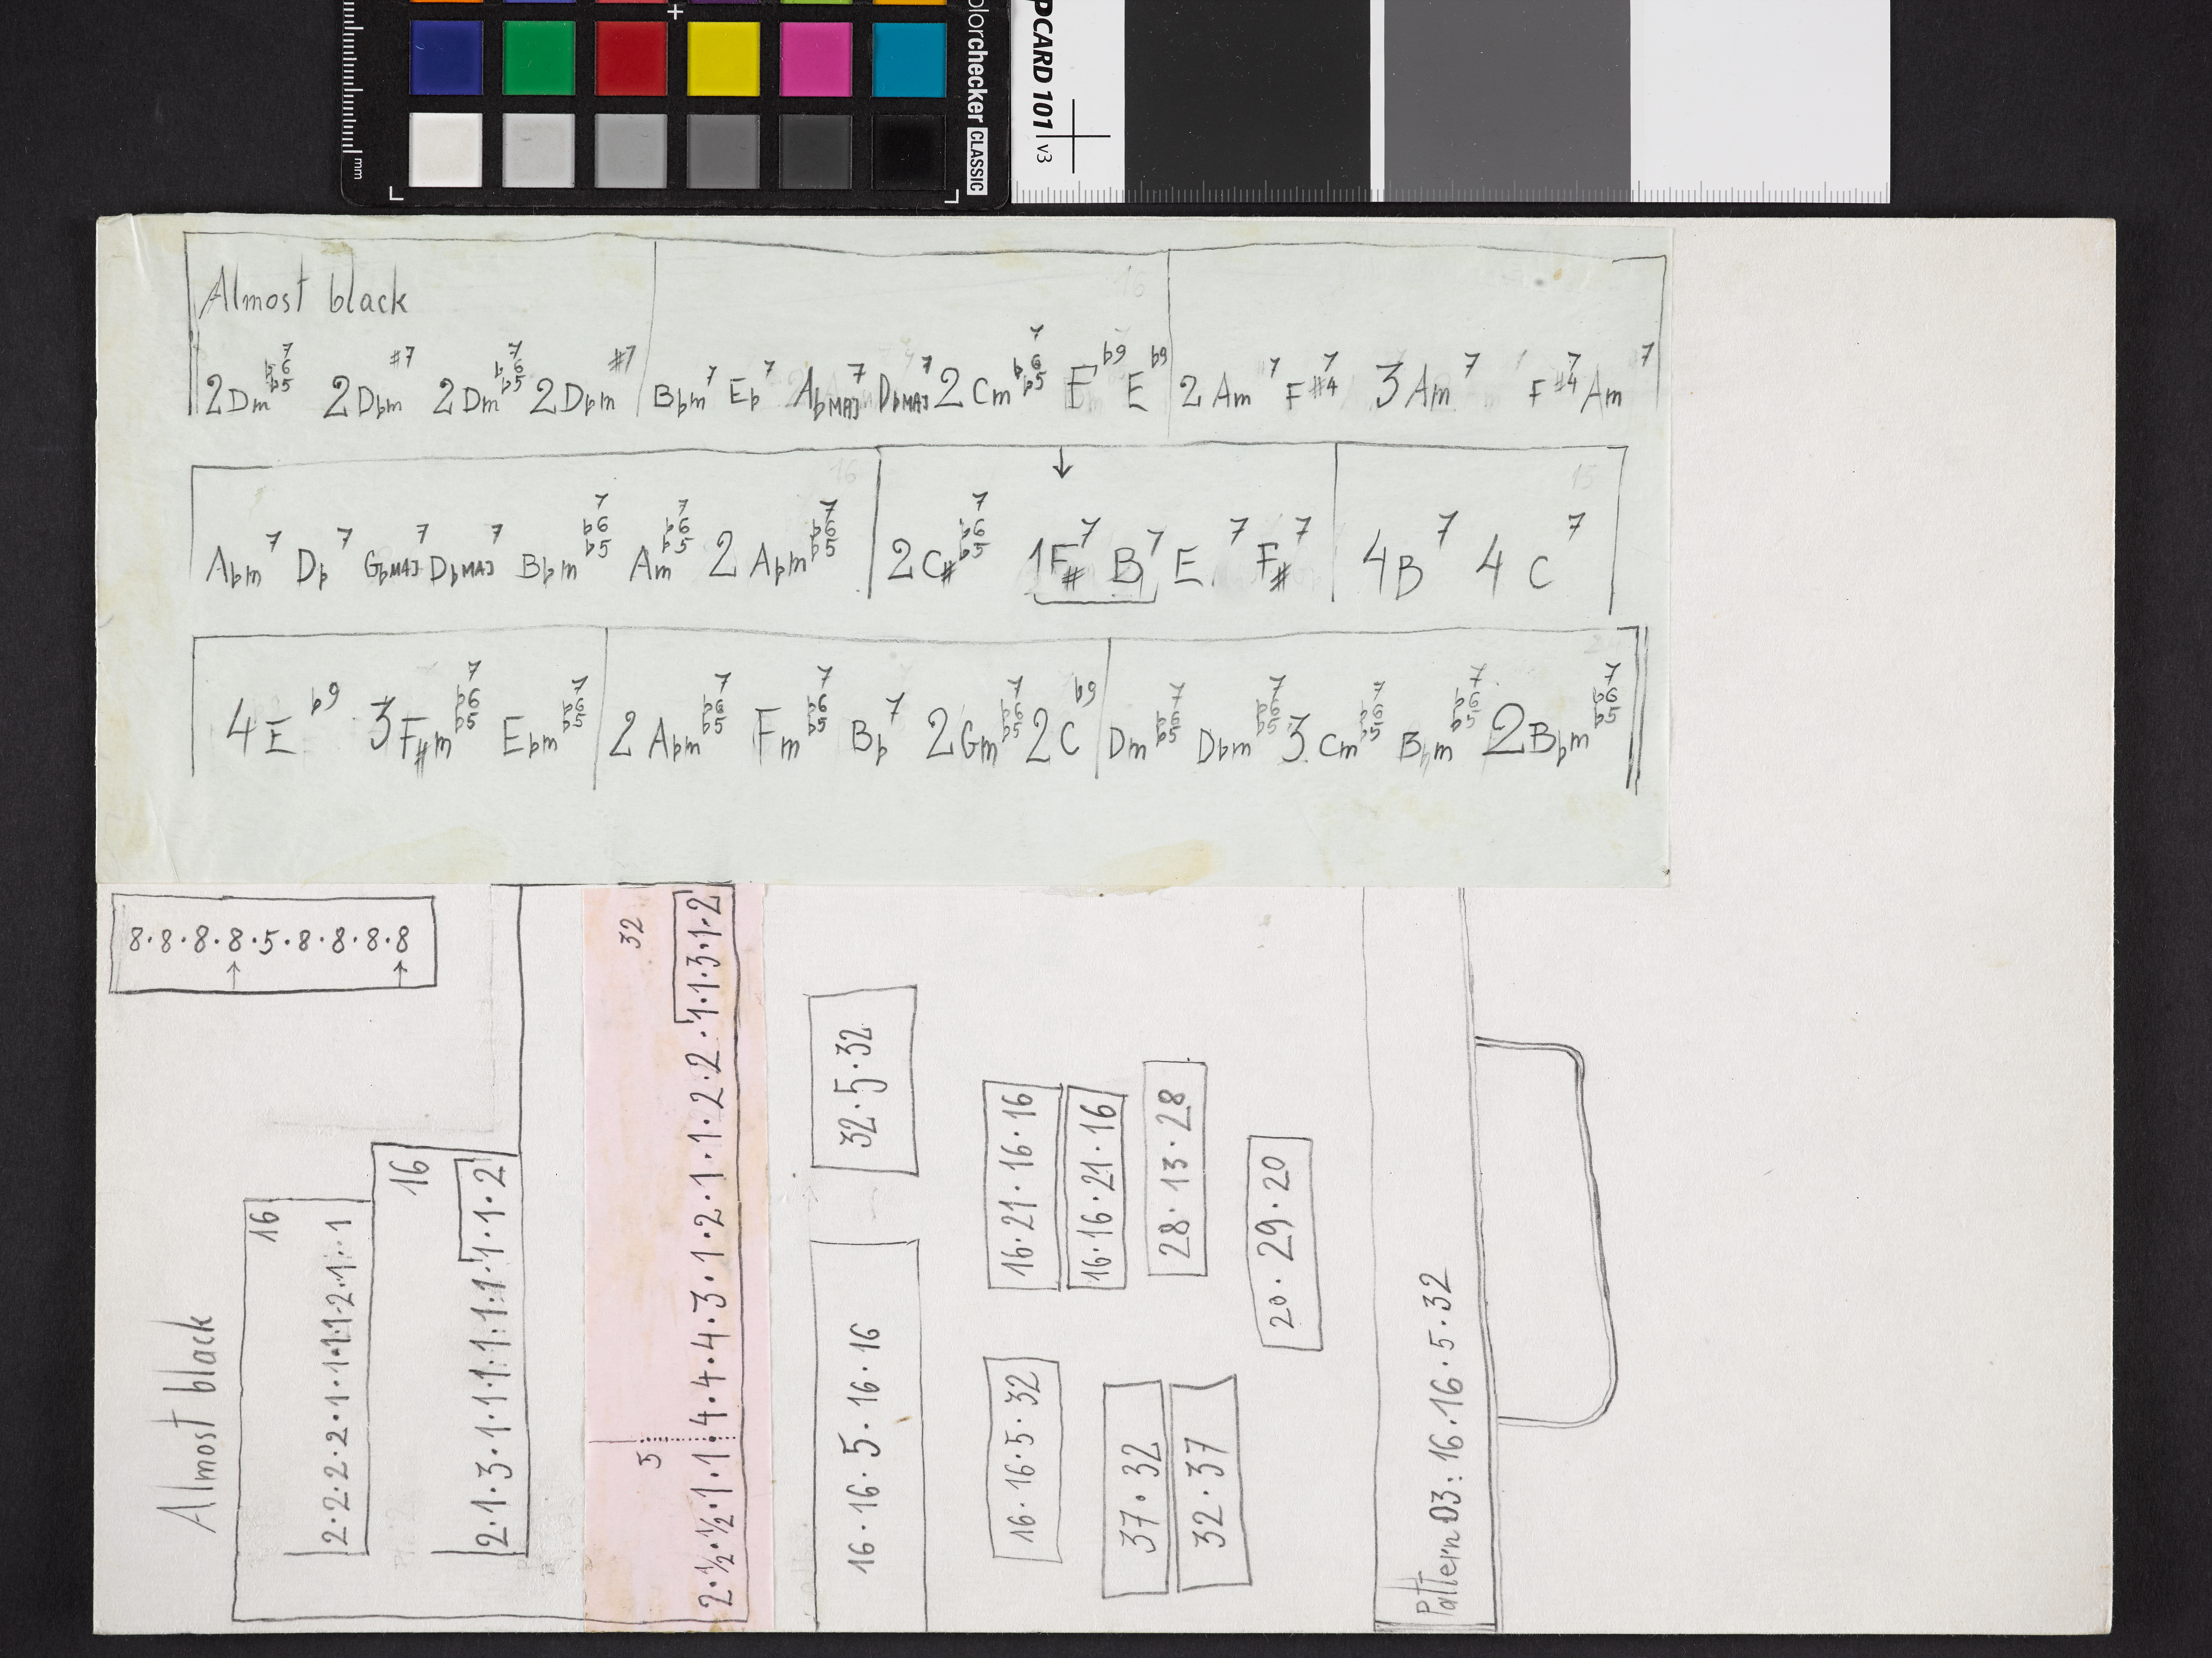 colorchecker CLASSIC
mm
PCARD 101 v3
Almost black
16
2Dm7♭6♭5 2D♭m#7 2Dm7♭6♭5 2D♭m#7 B♭m7 E♭7 A♭MAJ7 D♭MAJ7 2Cm7♭6♭5 E♭9 E♭9 2Am7 F7#4 3Am7 F7#4 Am7
16
15
A♭m7 D♭7 G♭MAJ7 D♭MAJ7 B♭m7♭6♭5 Am7♭6♭5 2A♭m7♭6♭5 2C#7♭6♭5 ↓ 1F#7 B7 E7 F#7 4B7 4C7
4E♭9 3F#m7♭6♭5 E♭m7♭6♭5 2A♭m7♭6♭5 Fm7♭6♭5 B♭7 2Gm7♭6♭5 2C♭9 Dm7♭6♭5 D♭m7♭6♭5 3Cm7♭6♭5 B♭m7♭6♭5 2B♭m7♭6♭5
8·8·8·8·5·8·8·8·8
↑ ↑
Almost black
16
2·2·2·2·1·1·1·1·2·1·1
16
2·1·3·1·1·1·1·1·1·1·1·2
5 32
2·½·½·1·1·4·4·4·3·1·2·1·1·2·2·1·1·3·1·2
32·5·32
16·16·5·16·16
16·21·16·16
16·16·21·16
28·13·28
20·29·20
16·16·5·32
37·32
32·37
Pattern 03: 16·16·5·32